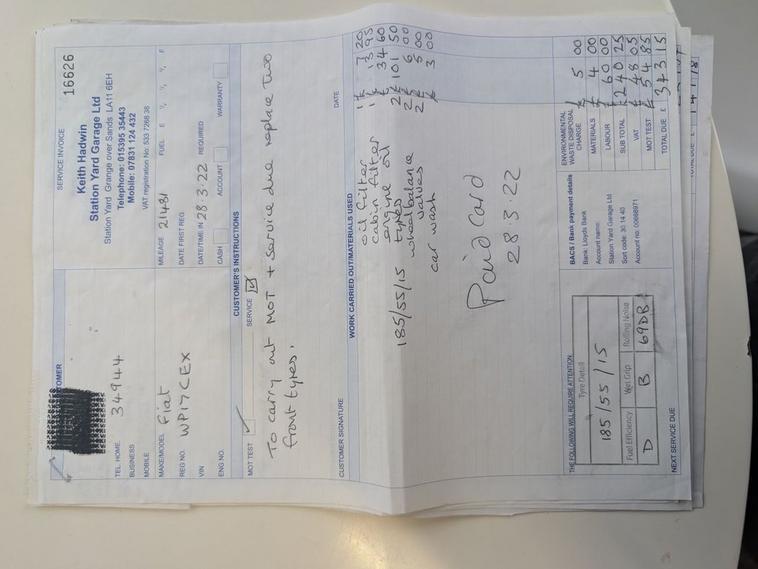 SERVICE INVOICE 16626
Keith Hadwin
Station Yard Garage Ltd
Station Yard Grange over Sands LA11 6EH
Telephone: 015395 35443
Mobile: 07831 124 432
VAT registration No: 533 7268 36
CUSTOMER
TEL. HOME 34944
BUSINESS
MOBILE
MAKE/MODEL Fiat MILEAGE 21481 FUEL E ¼ ½ ¾ F
REG NO. WP17CEX DATE FIRST REG.
VIN DATE/TIME IN 28.3.22 REQUIRED
ENG NO. CASH ACCOUNT WARRANTY
CUSTOMER'S INSTRUCTIONS
MOT TEST ✓ SERVICE ✓
To carry out MOT + service due replace two
front tyres.
CUSTOMER SIGNATURE DATE
WORK CARRIED OUT/MATERIALS USED
oil filter 1 £ 7 20
cabin filter 1 £ 13 95
engine oil £ 34 60
185/55/15 tyres 2 £ 101 50
wheel balance 2 £ 6 00
valves 2 £ 5 00
car wash £ 3 00
Paid Card
28.3.22
THE FOLLOWING WILL REQUIRE ATTENTION
Tyre Detail
185/55/15
Fuel Efficiency Wet Grip Rolling Noise
D B 69DB
NEXT SERVICE DUE
BACS / Bank payment details
Bank: Lloyds Bank
Account name:
Station Yard Garage Ltd
Sort code: 30 14 40
Account no: 00688971
ENVIRONMENTAL WASTE DISPOSAL CHARGE £ 5 00
MATERIALS £ 4 00
LABOUR £ 60 00
SUB TOTAL £ 240 25
VAT £ 48 05
MOT TEST £ 54 85
TOTAL DUE £ 343 15